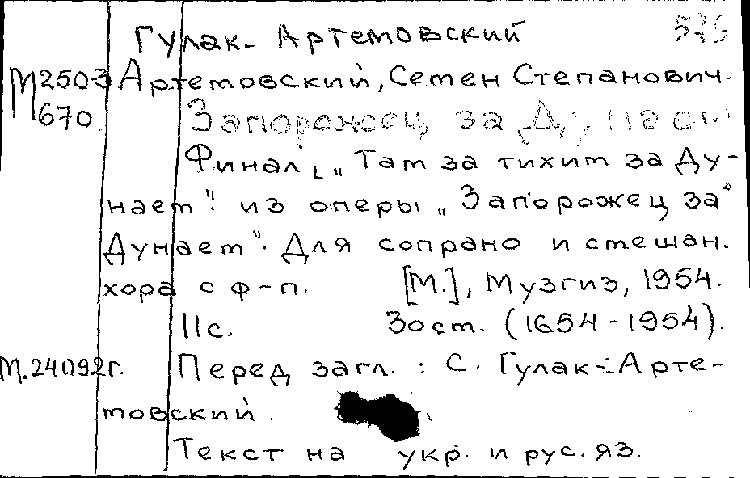 Гулак-Артемовский
М2503 Артемовский, Семен Степанович.
670 Запорожец за Дунаем
Финал „Там за тихим за Ду-
наем". из оперы „Запорожец за
Дунаем". Для сопрано и смешан.
хора с ф-п. [М.], Музгиз, 1954.
11с. 30см. (1654-1954).
М.24092г. Перед загл.: С. Гулак-Арте-
мовский.
Текст на укр. и рус. яз.